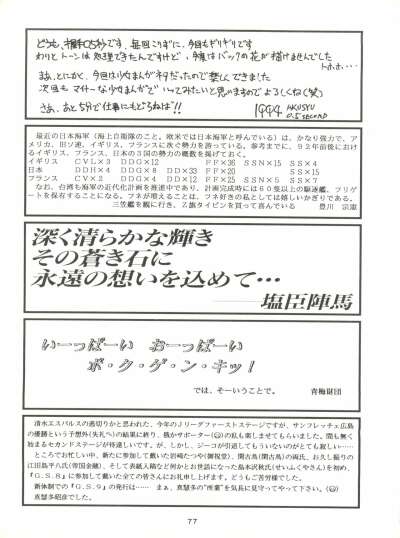 どうも、握手0.5秒です、毎回こりずに、今回もギリギリです
わりとトーンは処理できたんですけど、今度はバックの花が描けませんでした
トホホ…
まぁ、とにかく、今回は少女まんがネタだったので楽しんできました
次回もマイナーな少女まんがでいってみたいと思いますのでよろしくね(笑)
さぁ、あと5分で仕事にもどらねば!!
1994 AKUSYU 0.5 SECOND
最近の日本海軍(海上自衛隊のこと。欧米では日本海軍と呼んでいる)は、かなり強力で、ア
メリカ、旧ソ連、イギリス、フランスに次ぐ勢力を誇っている。参考までに、92年前後にお
けるイギリス、フランス、日本の3国の勢力の概数を掲げておく。
イギリス CVL×3 DDG×12 FF×36 SSN×15 SS×4
日本 DDH×4 DDG×8 DD×33 FF×20 SS×15
フランス CV×2 DDG×4 DD×12 FF×25 SSN×5 SS×7
なお、台湾も海軍の近代化計画を推進中であり、計画完成時には60隻以上の駆逐艦、フリゲー
トを保有することになる。フネが増えることは、フネ好きの私としては嬉しいかぎりである。
三笠艦を観に行き、Z旗タイピンを買って喜んでいる 豊川 宗重
深く清らかな輝き
その蒼き石に
永遠の想いを込めて…
──塩臣陣馬
いーっぱーい おーっぱーい
ボ・ク・ゲ・ン・キッ!
では、そーいうことで。 青梅財団
清水エスパルスの過切りかと思われた、今年のJリーグファーストステージですが、サンフレッチェ広島
の優勝という予想外(失礼へ)の結果に終り、俄かサポーター(㊙)の私も楽しませてもらいました。間も無く
始まるセカンドステージが待遠しいです。が、しかし、ジーコが引退してもういないのがとても寂しい……
ところでお忙しい中、新たに参加して戴いた岩崎たつや(御祝堂)、関古鳥(関古鳥)の両氏、お久し振りの
江田島平八氏(帝国金融)、そして表紙入稿など何かとお世話になった島本沢秋氏(せいふくやさん)を初め、
『G.S.8』に参加して戴いた全ての皆さんにお礼申し上げます。どうもご苦労様でした。
新体制での『G.S.9』の発行は…… まぁ、真慧多の"所業"を気長に見守ってやって下さい。
真慧多昭彦でした。
77